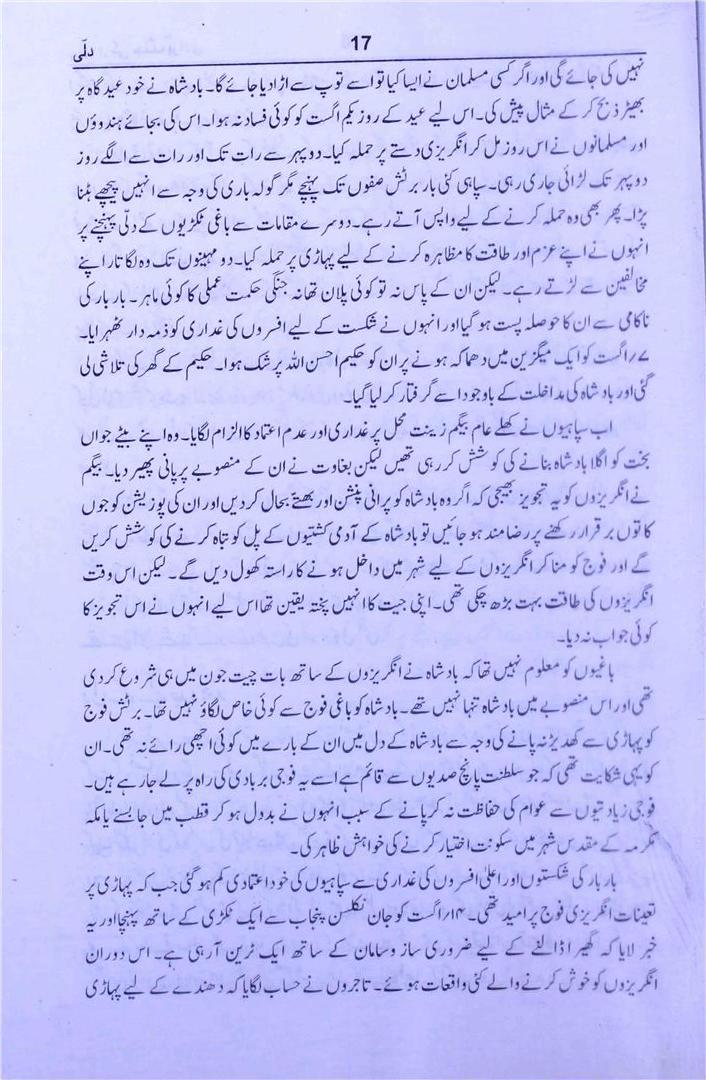 17
دلّی
نہیں کی جائے گی اور اگر کسی مسلمان نے ایسا کیا تو اسے توپ سے اڑا دیا جائے گا۔ بادشاہ نے خود عید گاہ پر
بھیڑ ذبح کر کے مثال پیش کی۔ اس لیے عید کے روز یکم اگست کو کوئی فساد نہ ہوا۔ اس کی بجائے ہندوؤں
اور مسلمانوں نے اس روز مل کر انگریزی دستے پر حملہ کیا۔ دوپہر سے رات تک اور رات سے اگلے روز
دوپہر تک لڑائی جاری رہی۔ سپاہی کئی بار برٹش صفوں تک پہنچے مگر گولہ باری کی وجہ سے انہیں پیچھے ہٹنا
پڑا۔ پھر بھی وہ حملہ کرنے کے لیے واپس آتے رہے۔ دوسرے مقامات سے باغی ٹکڑیوں کے دلّی پہنچنے پر
انہوں نے اپنے عزم اور طاقت کا مظاہرہ کرنے کے لیے پہاڑی پر حملہ کیا۔ دو مہینوں تک وہ لگاتار اپنے
مخالفین سے لڑتے رہے۔ لیکن ان کے پاس نہ تو کوئی پلان تھا نہ جنگی حکمت عملی کا کوئی ماہر۔ بار بار کی
ناکامی سے ان کا حوصلہ پست ہو گیا اور انہوں نے شکست کے لیے افسروں کی غداری کو ذمہ دار ٹھہرایا۔
۷/اگست کو ایک میگزین میں دھماکہ ہونے پر ان کو حکیم احسن اللہ پر شک ہوا۔ حکیم کے گھر کی تلاشی لی
گئی اور بادشاہ کی مداخلت کے باوجود اسے گرفتار کر لیا گیا۔
اب سپاہیوں نے کھلے عام بیگم زینت محل پر غداری اور عدم اعتماد کا الزام لگایا۔ وہ اپنے بیٹے جواں
بخت کو اگلا بادشاہ بنانے کی کوشش کر رہی تھیں لیکن بغاوت نے ان کے منصوبے پر پانی پھیر دیا۔ بیگم
نے انگریزوں کو یہ تجویز بھیجی کہ اگر وہ بادشاہ کو پرانی پنشن اور بھتے بحال کر دیں اور ان کی پوزیشن کو جوں
کا توں برقرار رکھنے پر رضامند ہو جائیں تو بادشاہ کے آدمی کشتیوں کے پل کو تباہ کرنے کی کوشش کریں
گے اور فوج کو منا کر انگریزوں کے لیے شہر میں داخل ہونے کا راستہ کھول دیں گے۔ لیکن اس وقت
انگریزوں کی طاقت بہت بڑھ چکی تھی۔ اپنی جیت کا انہیں پختہ یقین تھا اس لیے انہوں نے اس تجویز کا
کوئی جواب نہ دیا۔
باغیوں کو معلوم نہیں تھا کہ بادشاہ نے انگریزوں کے ساتھ بات چیت جون میں ہی شروع کر دی
تھی اور اس منصوبے میں بادشاہ تنہا نہیں تھے۔ بادشاہ کو باغی فوج سے کوئی خاص لگاؤ نہیں تھا۔ برٹش فوج
کو پہاڑی سے کھدیڑ نہ پانے کی وجہ سے بادشاہ کے دل میں ان کے بارے میں کوئی اچھی رائے نہ تھی۔ ان
کو یہی شکایت تھی کہ جو سلطنت پانچ صدیوں سے قائم ہے اسے یہ فوجی بربادی کی راہ پر لے جا رہے ہیں۔
فوجی زیادتیوں سے عوام کی حفاظت نہ کر پانے کے سبب انہوں نے بددل ہو کر قطب میں جا بسنے یا مکہ
مکرمہ کے مقدس شہر میں سکونت اختیار کرنے کی خواہش ظاہر کی۔
بار بار کی شکستوں اور اعلیٰ افسروں کی غداری سے سپاہیوں کی خود اعتمادی کم ہو گئی جب کہ پہاڑی پر
تعینات انگریزی فوج پر امید تھی۔ ۱۴/اگست کو جان نکلسن پنجاب سے ایک ٹکڑی کے ساتھ پہنچا اور یہ
خبر لایا کہ گھیرا ڈالنے کے لیے ضروری ساز و سامان کے ساتھ ایک ٹرین آ رہی ہے۔ اس دوران
انگریزوں کو خوش کرنے والے کئی واقعات ہوئے۔ تاجروں نے حساب لگایا کہ دھندے کے لیے پہاڑی